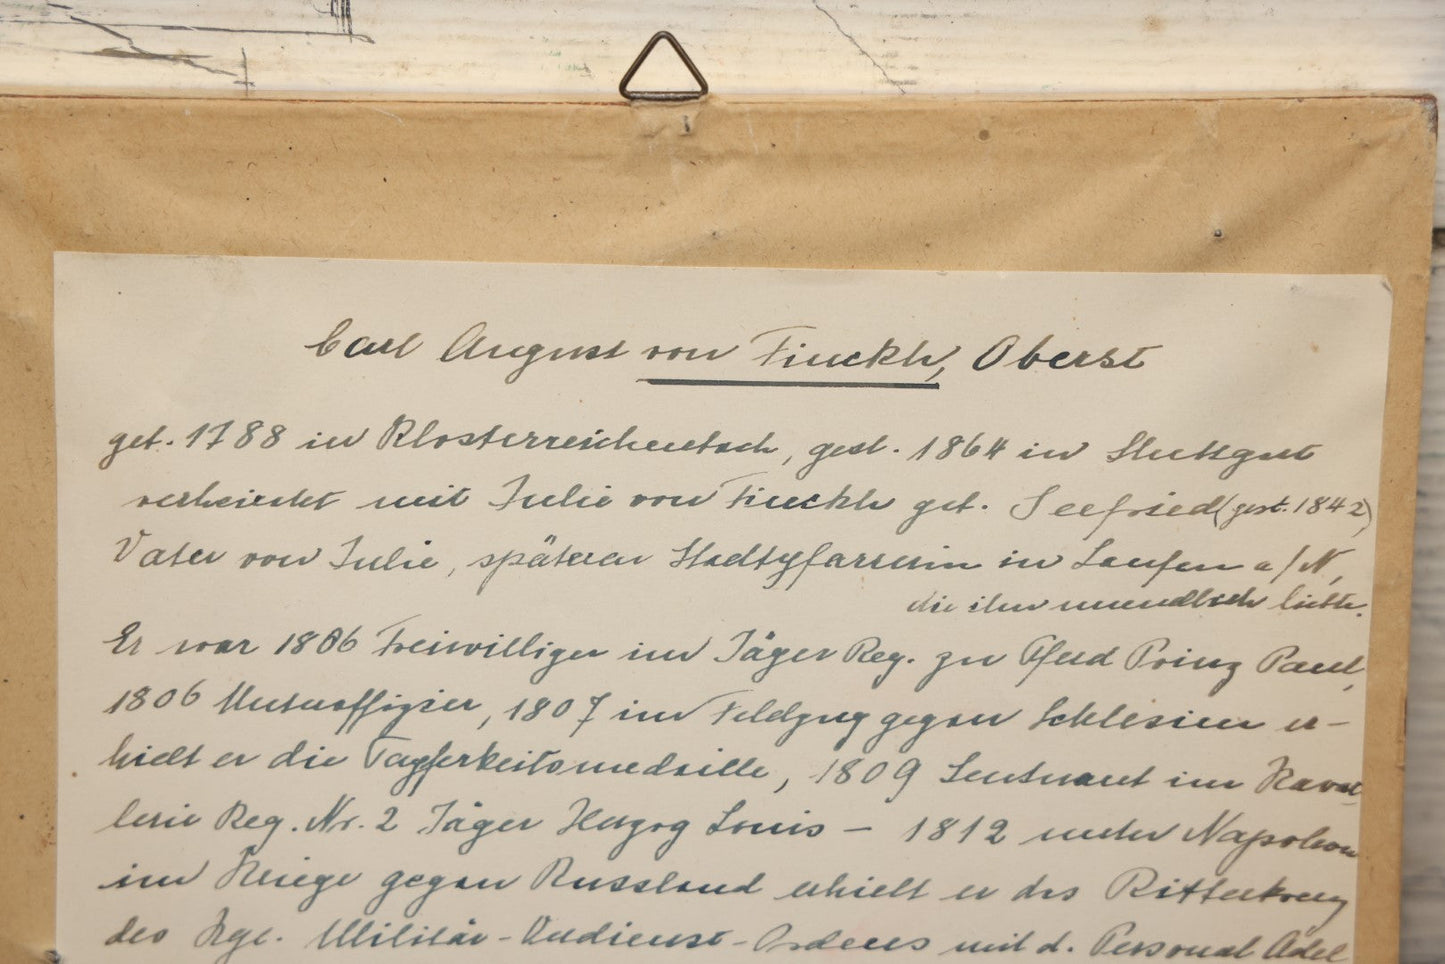 Carl August von Finckh, Oberst
geb. 1788 in Klosterreichenbach, gest. 1864 in Stuttgart
verheiratet mit Julie von Finckh geb. Seefried (gest. 1842)
Vater von Julie, späteren Stadtpfarrerin in Laufen a/N,
die ihn unendlich liebte.
Er war 1806 Freiwilliger im Jäger Reg. zu Pferd Prinz Paul,
1806 Unteroffizier, 1807 im Feldzug gegen Schlesien er-
hielt er die Tapferkeitsmedaille, 1809 Leutnant im Kaval-
lerie Reg. Nr. 2 Jäger Herzog Louis – 1812 unter Napoleon
im Kriege gegen Russland erhielt er das Ritterkreuz
des Kgl. Militär-Verdienst-Ordens mit d. Personal Adel